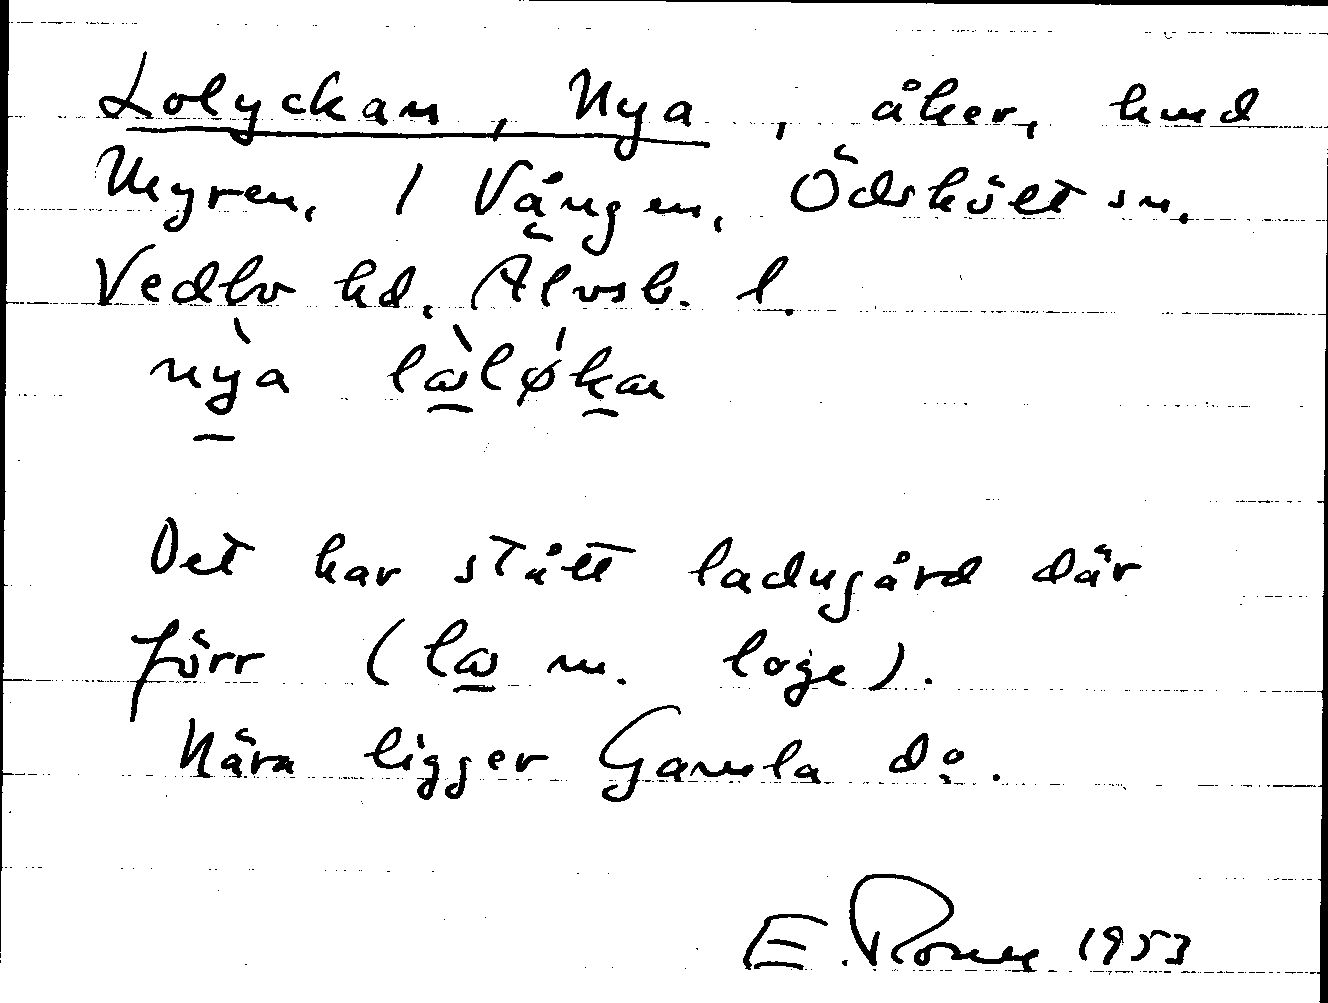 Lolyckan, Nya, åker, hmd
Myren, 1 Vången, Ödskölt sn,
Vedbo hd, Älvsb. l.
nỳa lὼlǿkaɴ
Det har stått ladugård där
förr (lω m. loge).
Nära ligger Gamla do.
E. 1953